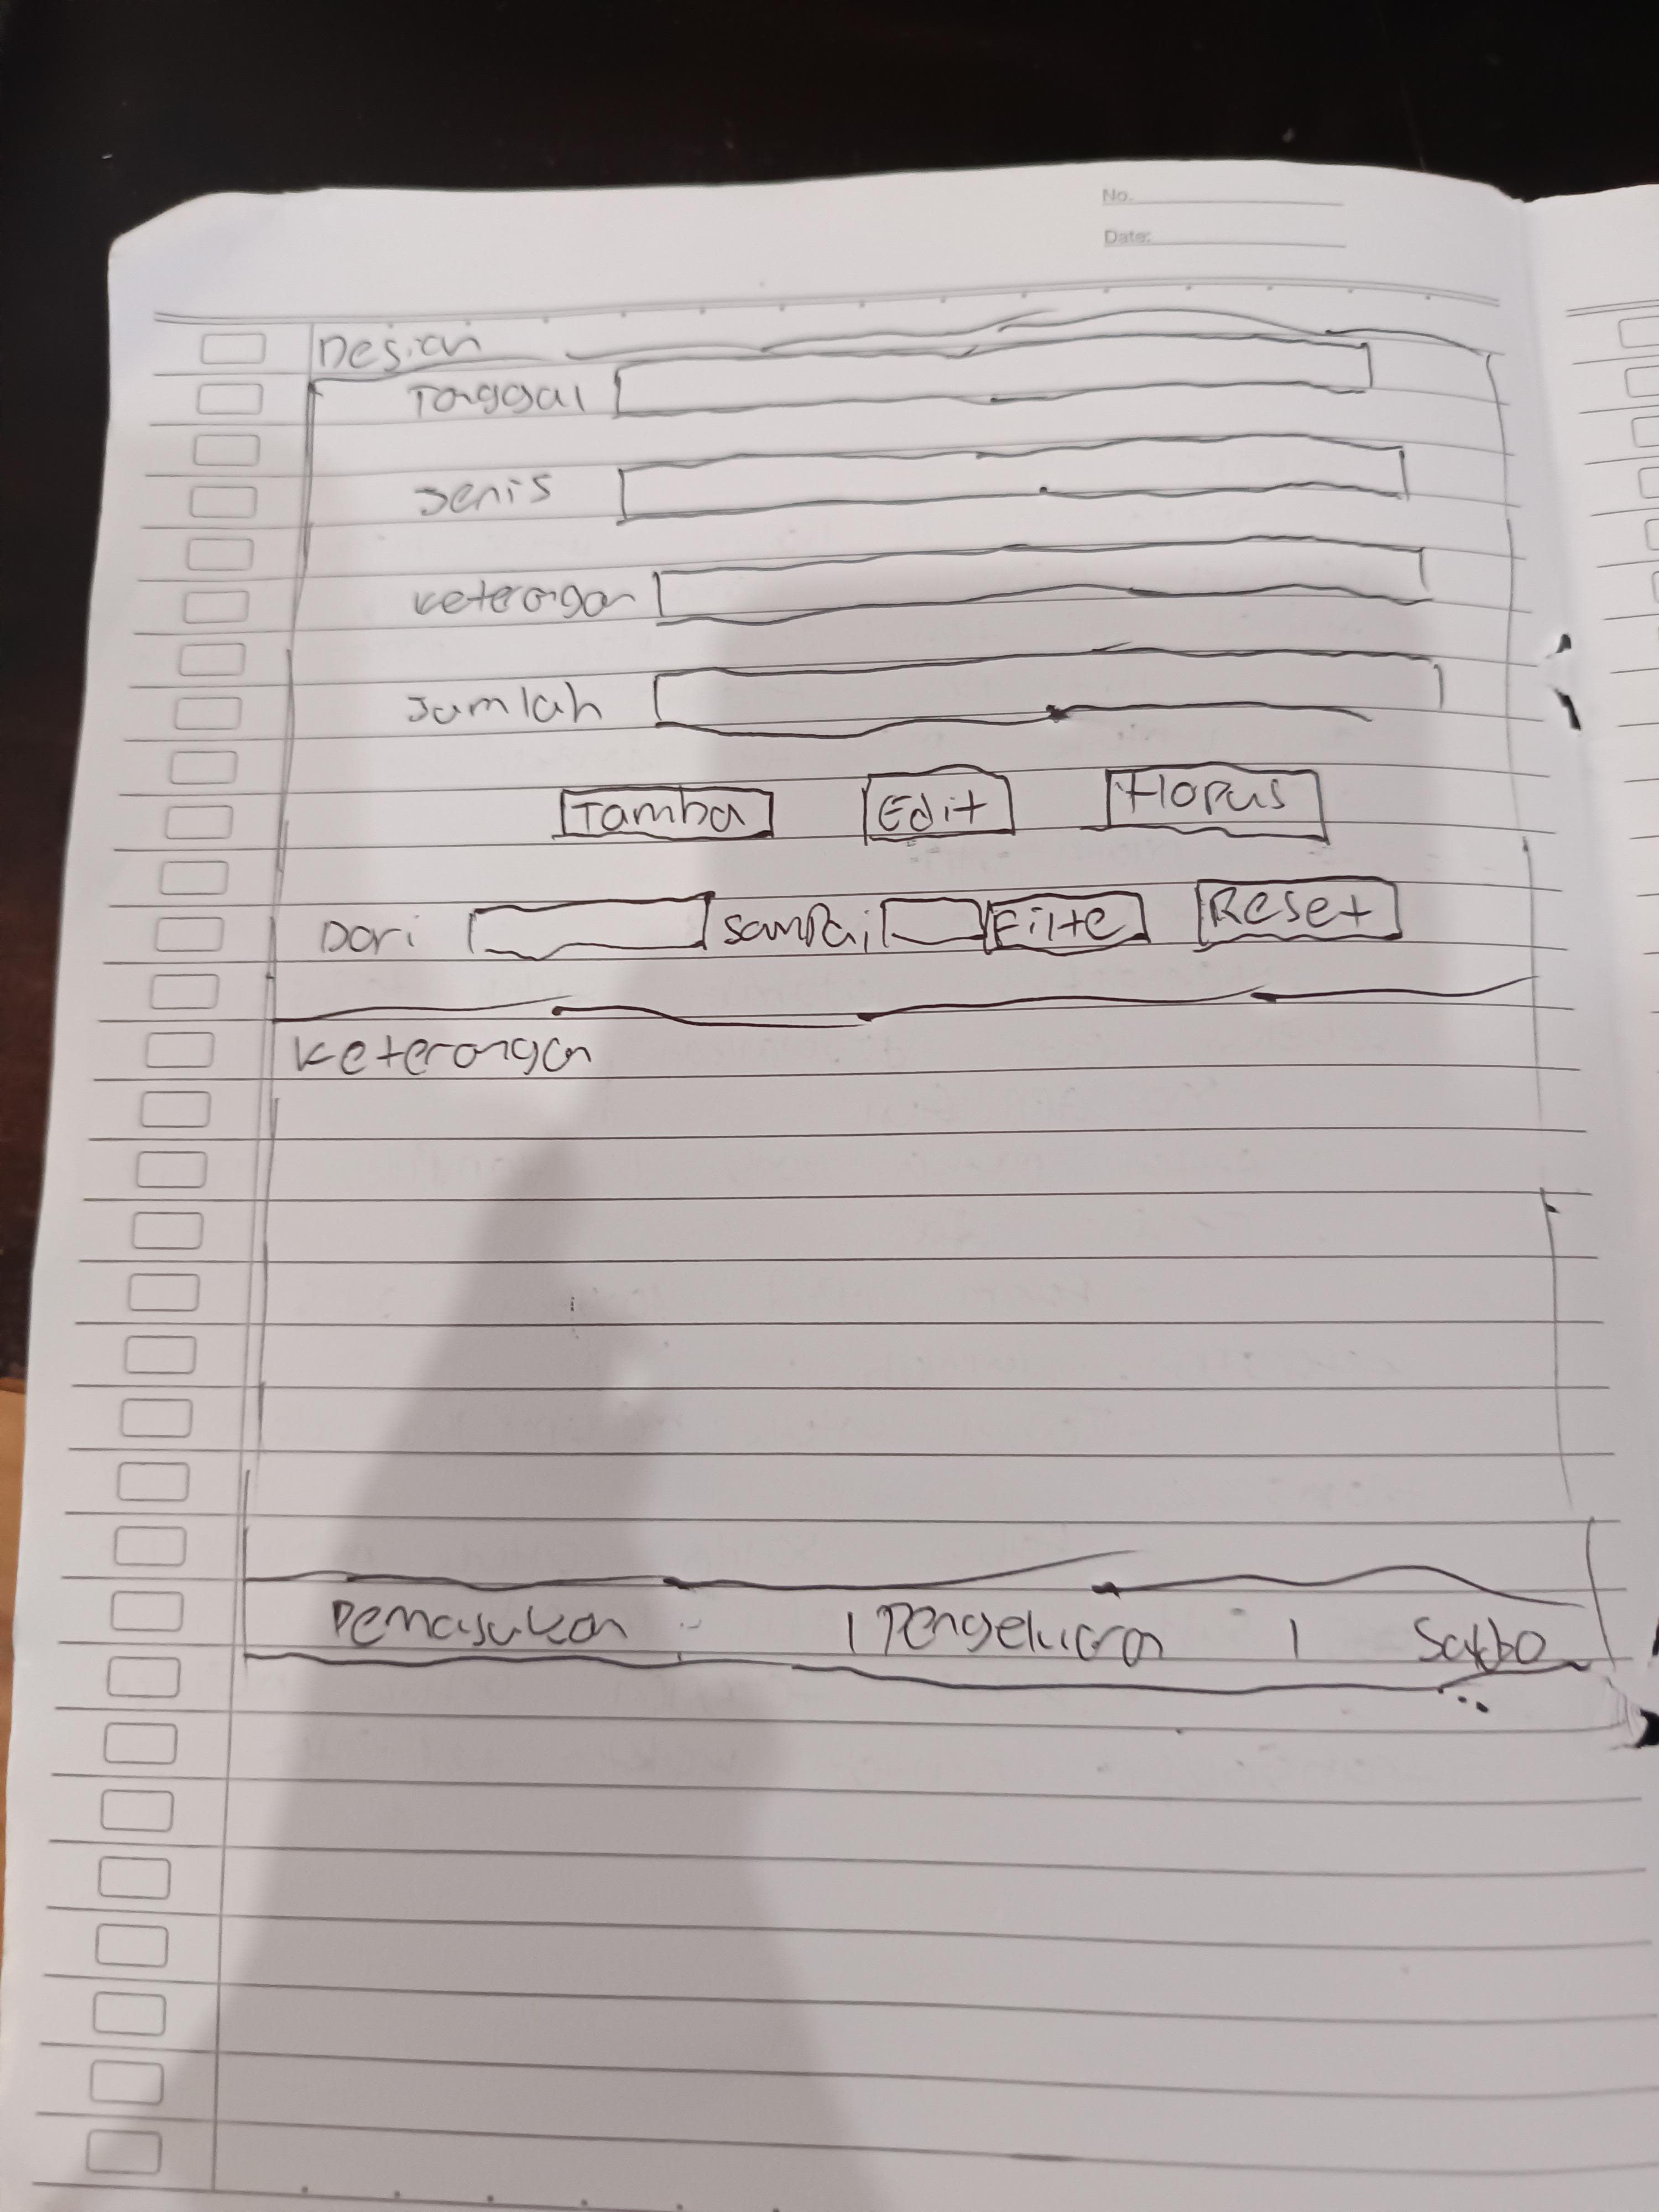 No.
Date:
Design
Tanggal
Jenis
Keterangan
Jumlah
Tamba Edit Hapus
Dari Sampai Filte Reset
Keterangan
Pemasukan | Pengeluaran | Saldo